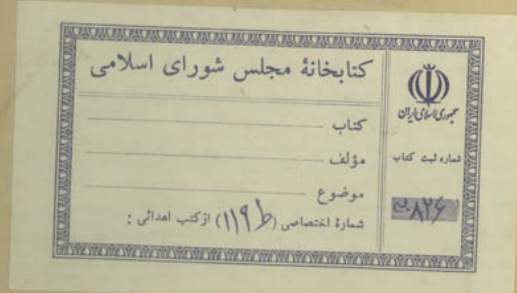 کتابخانهٔ مجلس شورای اسلامی
کتاب
مؤلف
موضوع
شمارهٔ اختصاصی (۱۱۹ ط) از کتب اهدائی :
جمهوری اسلامی ایران
شماره ثبت کتاب